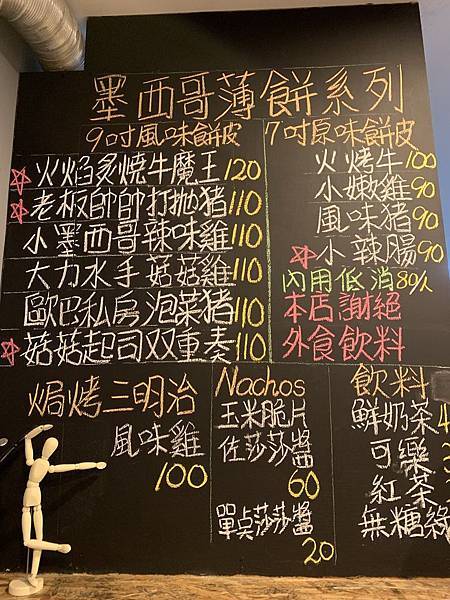 墨西哥薄餅系列
9吋風味餅皮
火焰炙燒牛魔王120
老板帥帥打拋豬110
小墨西哥辣味雞110
大力水手菇菇雞110
歐巴私房泡菜豬110
菇菇起司双重奏110
7吋原味餅皮
火烤牛100
小嫩雞90
風味豬90
小辣腸90
內用低消80/人
本店謝絕
外食飲料
焗烤三明治
風味雞
100
Nachos
玉米脆片
佐莎莎醬
60
單点莎莎醬
20
飲料
鮮奶茶
可樂
紅茶
無糖綠